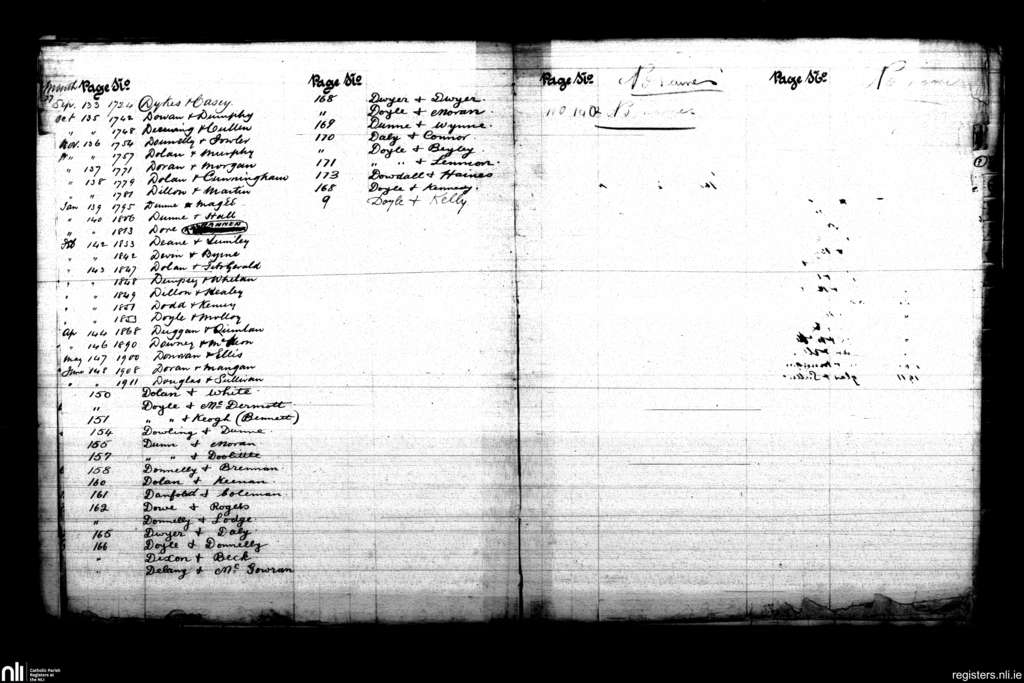 Month Page No.
Sep. 133 1724 Dykes & Casey
Oct 135 1742 Dowan & Dumphy
" " 1748 Deewing & Cullen
Nov. 136 1754 Donnelly & Fowler
" " 1757 Dolan & Murphy
" 137 1771 Doran & Morgan
" 138 1779 Dolan & Cunningham
" " 1781 Dillon & Martin
Jan 139 1795 Dunne & Magee
" 140 1806 Dunne & Hall
" " 1813 Dore & Hannen
Feb 142 1833 Deane & Lumley
" " 1842 Devin & Byrne
" 143 1847 Dolan & FitzGerald
" " 1848 Dempsey & Whelan
" " 1849 Dillon & Healey
" " 1851 Dodd & Kenny
" " 1853 Doyle & Molloy
Ap 144 1868 Duggan & Quinlan
" 146 1890 Downey & McKeon
May 147 1900 Donovan & Ellis
June 148 1908 Doran & Mangan
" " 1911 Douglas & Sullivan
150 Dolan & White
" Doyle & Mc Dermott
151 " " & Keogh (Bennett)
154 Dowling & Dunne
155 Dunn & Moran
157 " " & Doolittle
158 Donnelly & Brennan
160 Dolan & Keenan
161 Danfold & Coleman
162 Dowe & Rogers
" Donnelly & Lodge
165 Dwyer & Daly
166 Doyle & Donnelly
" Dixon & Beck
" Delany & Mc Gowran
Page No.
168 Dwyer & Dwyer
" Doyle & Moran
169 Dunne & Wynne
170 Daly & Connor
" Doyle & Begley
171 " " & Lennon
173 Dowdall & Haines
168 Doyle & Kennedy
9 Doyle & Kelly
Page No.
Page No.
nli Catholic Parish Registers at the NLI
registers.nli.ie